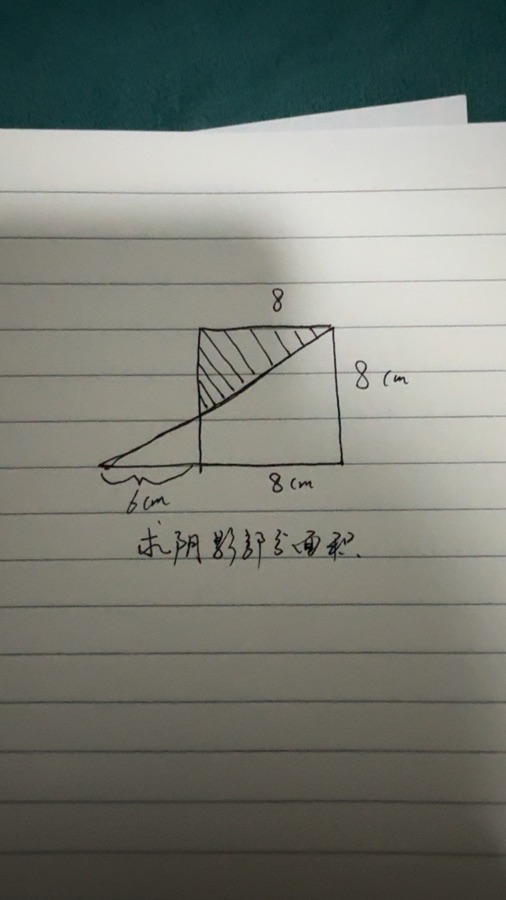 8
8 cm
6cm
8cm
求阴影部分面积.